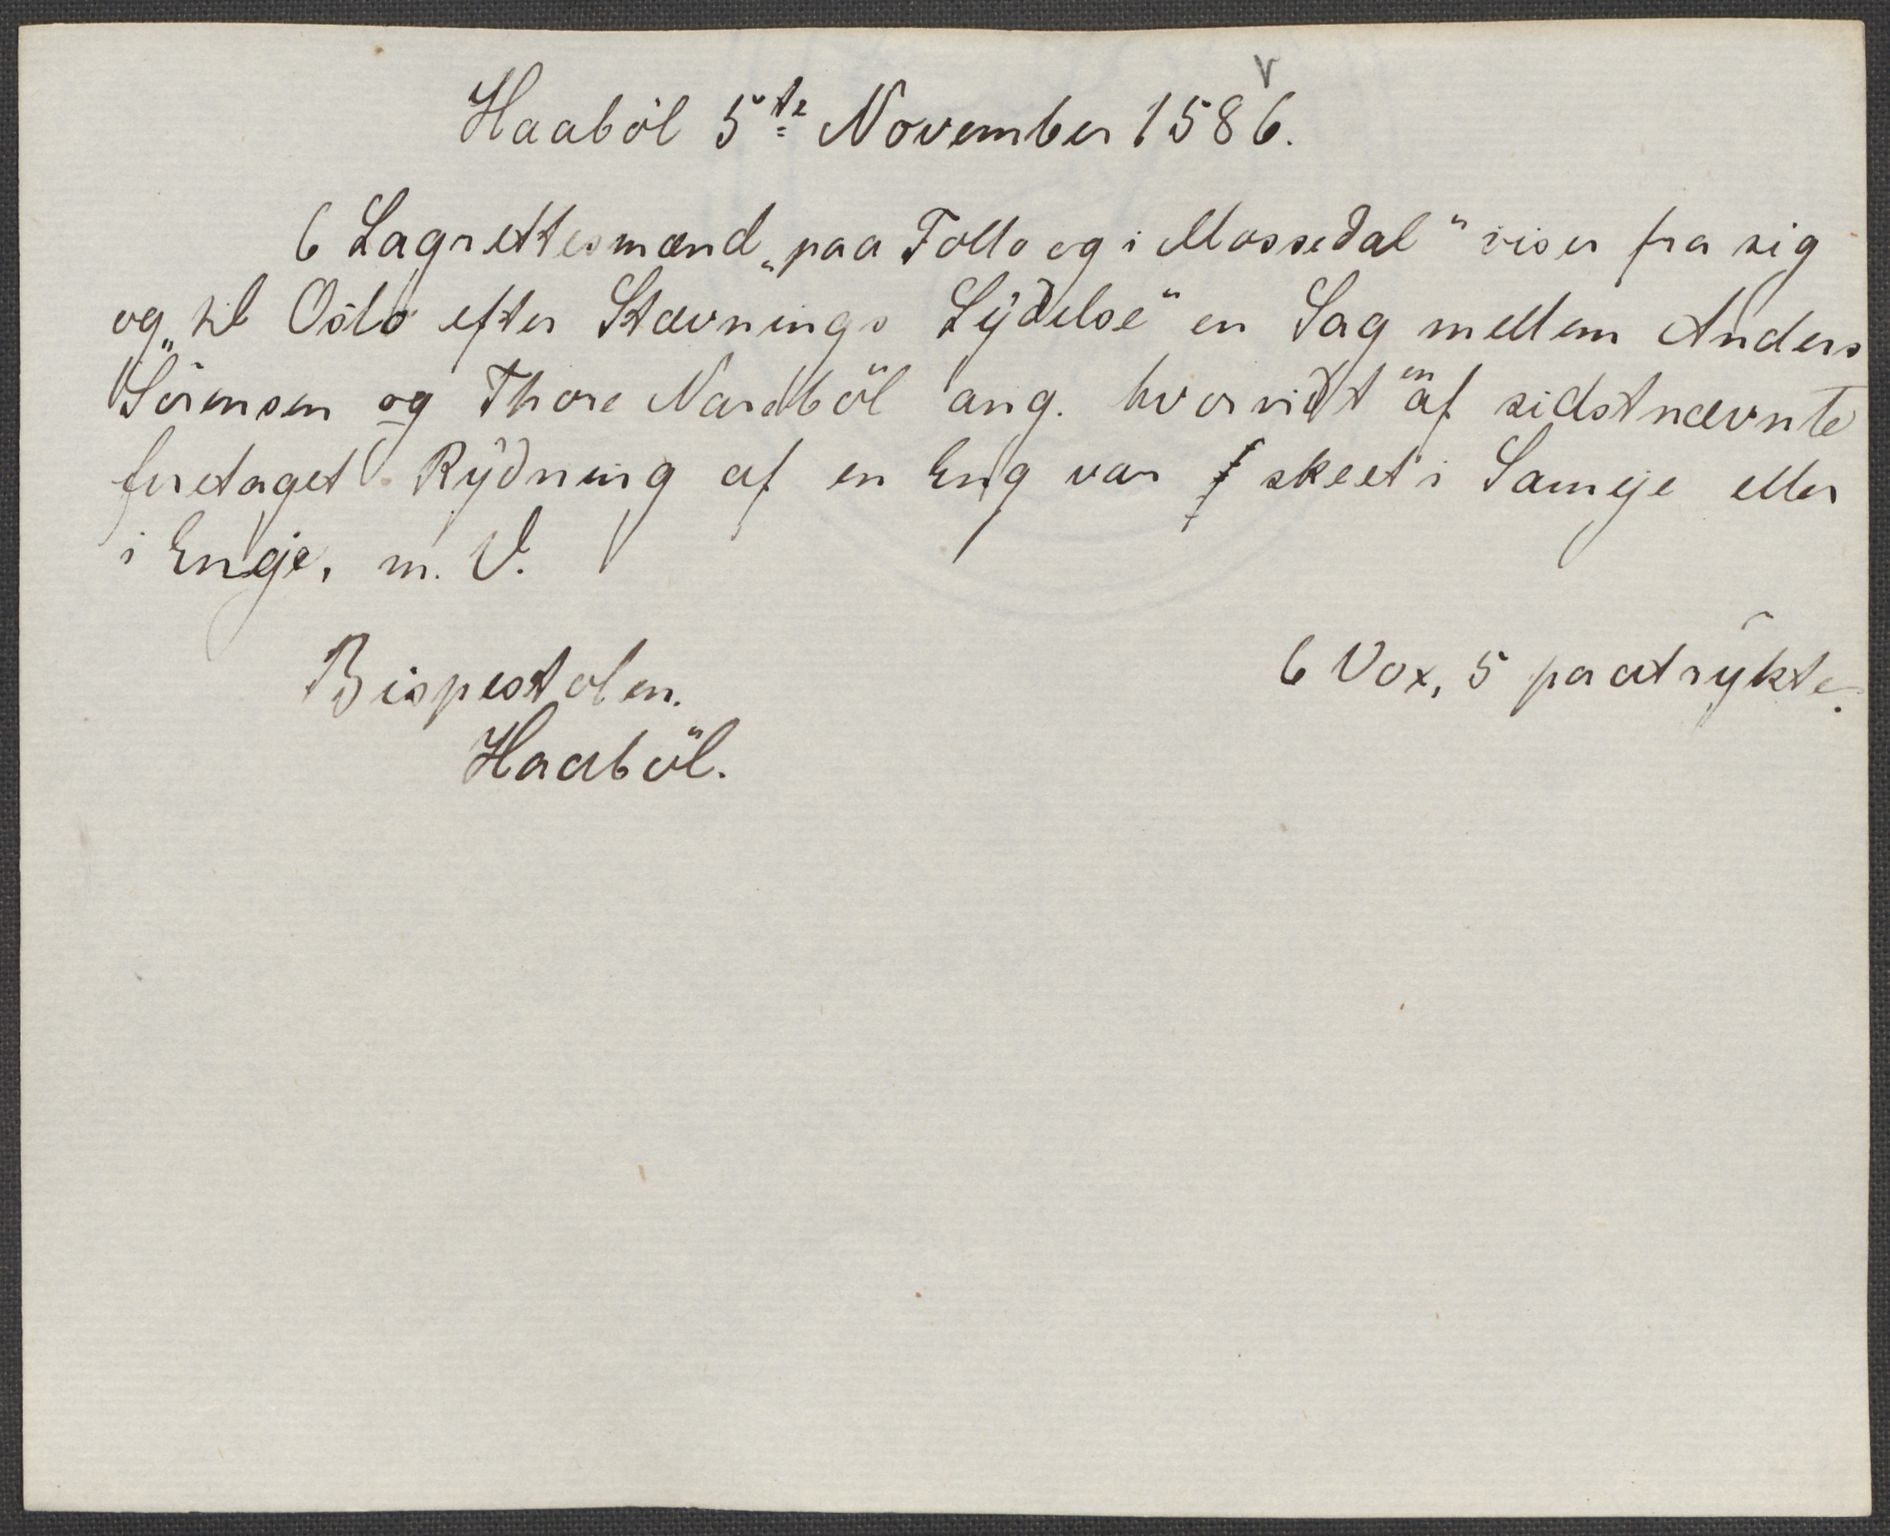 Haaböl 5te November 1586.
6 Lagrettesmænd „paa Follo og i Mossedal" viser fra sig
og „til Oslo efter Stævnings Lÿdelse" en Sag mellem Anders
Sörensen og Thore Nordböl ang. hvorvidt en af sidstnævnte
foretaget Rÿdning af en Eng var skeet i Sameje eller
i Eneje, m. V.
Bispestolen.
6 Vox, 5 paatrÿkte.
Haaböl.